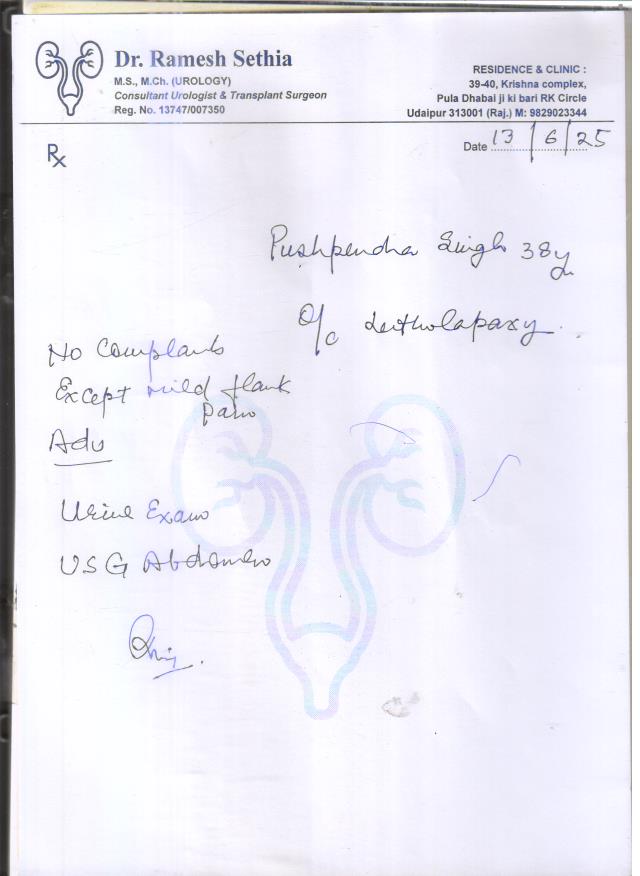 Dr. Ramesh Sethia
M.S., M.Ch. (UROLOGY)
Consultant Urologist & Transplant Surgeon
Reg. No. 13747/007350
RESIDENCE & CLINIC :
39-40, Krishna complex,
Pula Dhabai ji ki bari RK Circle
Udaipur 313001 (Raj.) M: 9829023344
Date 13/6/25
Rx
Pushpendra Singh 38y
O/c Leitholapaxy.
No Complants
Except mild flank
pain
Adv
Urine Exam
USG Abdomen